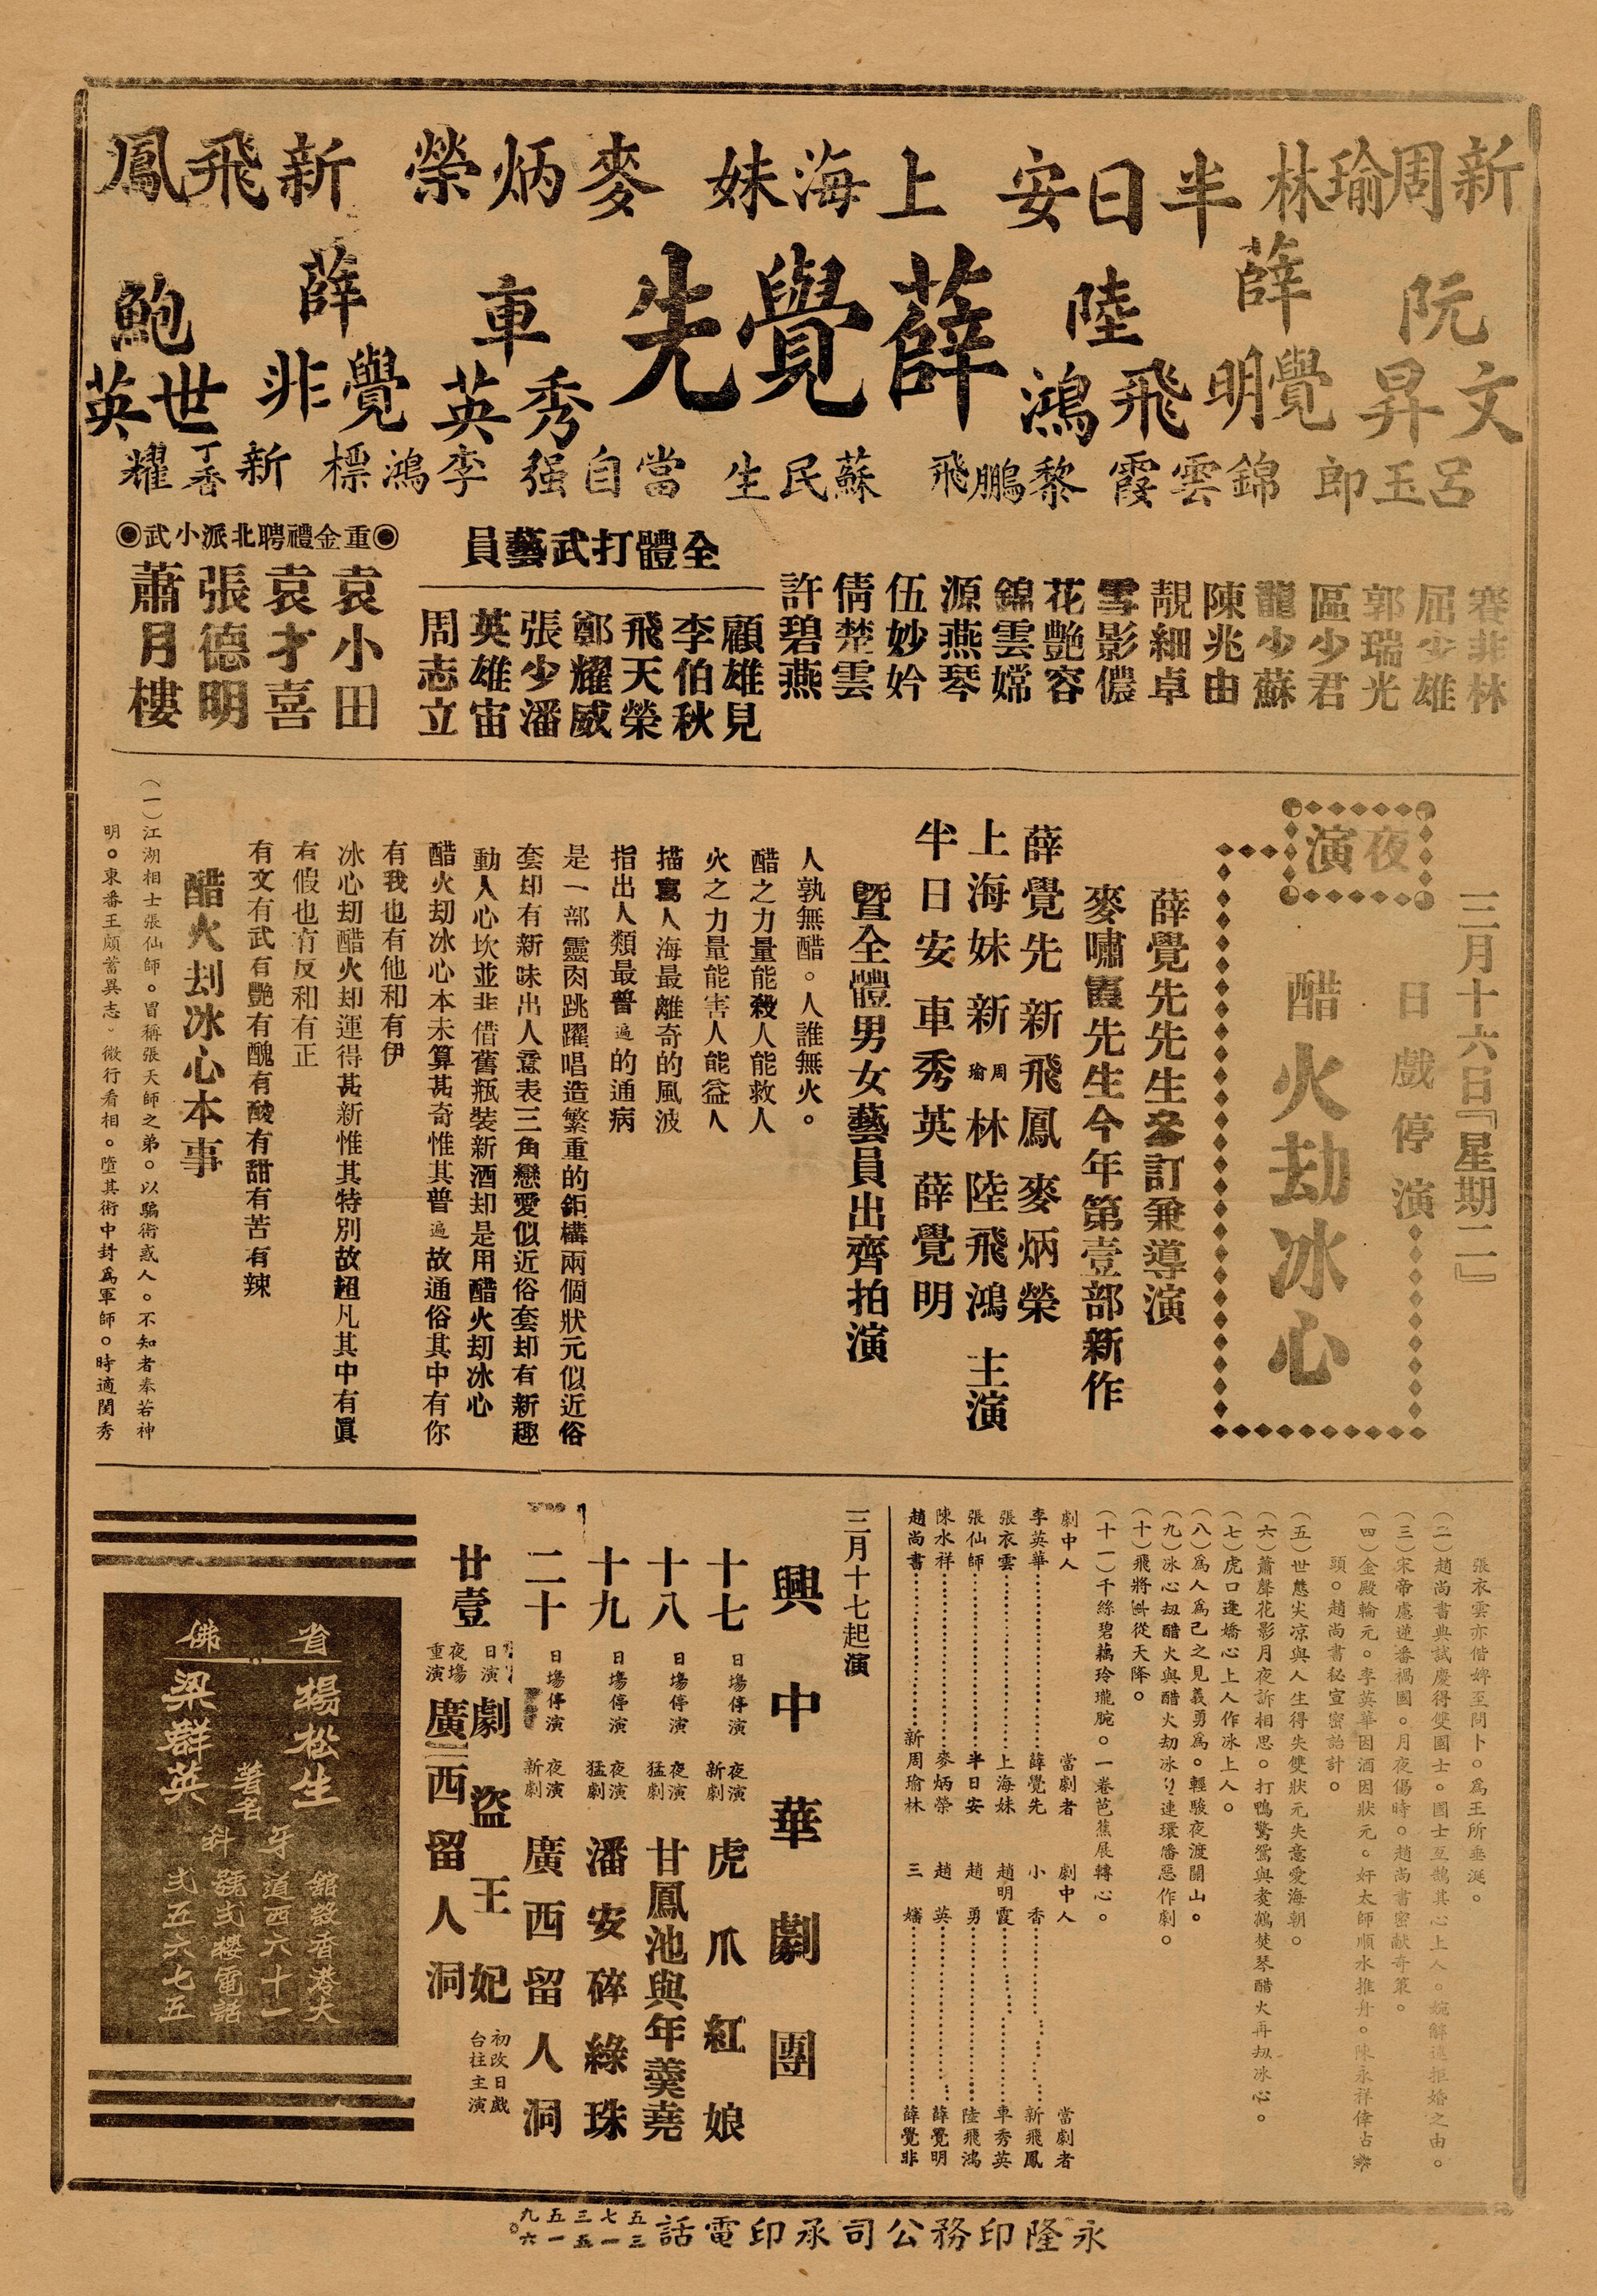 新周瑜林
半日安
上海妹
麥炳榮
新飛鳳
阮文昇
薛覺明
陸飛鴻
薛覺先
車秀英
薛覺非
鮑世英
呂玉郎
錦雲霞
黎鵬飛
蘇民生
當自强
李鴻標
新丁香耀
賽菲林
屈少雄
郭瑞光
區少君
龍少蘇
陳兆由
靚細卓
雪影儂
花艷容
錦雲嫦
源燕琴
伍妙妗
倩楚雲
許碧燕
全體打武藝員
顧雄見
李伯秋
飛天榮
鄭耀威
張少潘
英雄宙
周志立
◉重金禮聘北派小武◉
袁小田
袁才喜
張德明
蕭月樓
三月十六日『星期二』
日戲停演
夜演
醋火刼冰心
薛覺先先生叅訂兼導演
麥嘯霞先生今年第壹部新作
薛覺先 新飛鳳 麥炳榮
上海妹 新周瑜林 陸飛鴻 主演
半日安 車秀英 薛覺明
暨全體男女藝員出齊拍演
人孰無醋。人誰無火。
醋之力量能殺人能救人
火之力量能害人能益人
描寫人海最離奇的風波
指出人類最普遍的通病
是一部靈肉跳躍唱造繁重的鉅構兩個狀元似近俗
套却有新味出人意表三角戀愛似近俗套却有新趣
動人心坎並非借舊瓶裝新酒却是用醋火刼冰心
醋火刼冰心本未算甚奇惟其普遍故通俗其中有你
有我也有他和有伊
冰心刼醋火却運得甚新惟其特別故超凡其中有眞
有假也有反和有正
有文有武有艷有醜有酸有甜有苦有辣
醋火刦冰心本事
(一)江湖相士張仙師。冒稱張天師之弟。以騙術惑人。不知者奉若神
明。東番王頗蓄異志。微行看相。墮其術中封爲軍師。時適閨秀
張衣雲亦偕婢至問卜。爲王所垂涎。
(二)趙尚書典試慶得雙國士。國士互鵲其心上人。婉解遠拒婚之由。
(三)宋帝慮逆番禍國。月夜傷時。趙尚書密献奇策。
(四)金殿輪元。李英華因酒因狀元。奸太師順水推舟。陳永祥偉占鰲
頭。趙尚書秘宣密詒計。
(五)世態尖凉與人生得失雙狀元失意愛海朝。
(六)蕭聲花影月夜訴相思。打鴨驚鴛與煑鶴焚琴醋火再刼冰心。
(七)虎口逢嬌心上人作冰上人。
(八)爲人爲己之見義勇爲。輕駿夜渡關山。
(九)冰心刼醋火與醋火刼冰心連環譎惡作劇。
(十)飛將軍從天降。
(十一)千絲碧藕玲瓏腕。一卷芭蕉展轉心。
劇中人 當劇者 劇中人 當劇者
李英華……薛覺先 小香……新飛鳳
張衣雲……上海妹 趙明霞……車秀英
張仙師……半日安 趙勇……陸飛鴻
陳水祥……麥炳榮 趙英……薛覺明
趙尚書……新周瑜林 三嬸……薛覺非
三月十七起演
興中華劇團
十七 日塲停演 夜演新劇 虎爪紅娘
十八 日塲停演 夜演猛劇 甘鳳池與年羹堯
十九 日塲停演 夜演猛劇 潘安碎綠珠
二十 日塲停演 夜演新劇 廣西留人洞
廿壹 日演 劇盜王妃 初改日戲台柱主演
夜塲重演 廣西留人洞
省佛
楊松生
梁群英
著名牙科
舘設香港大
道西六十一
號弍樓電話
弍五六七五
永隆印務公司承印電話
五七三五九
三一五一六